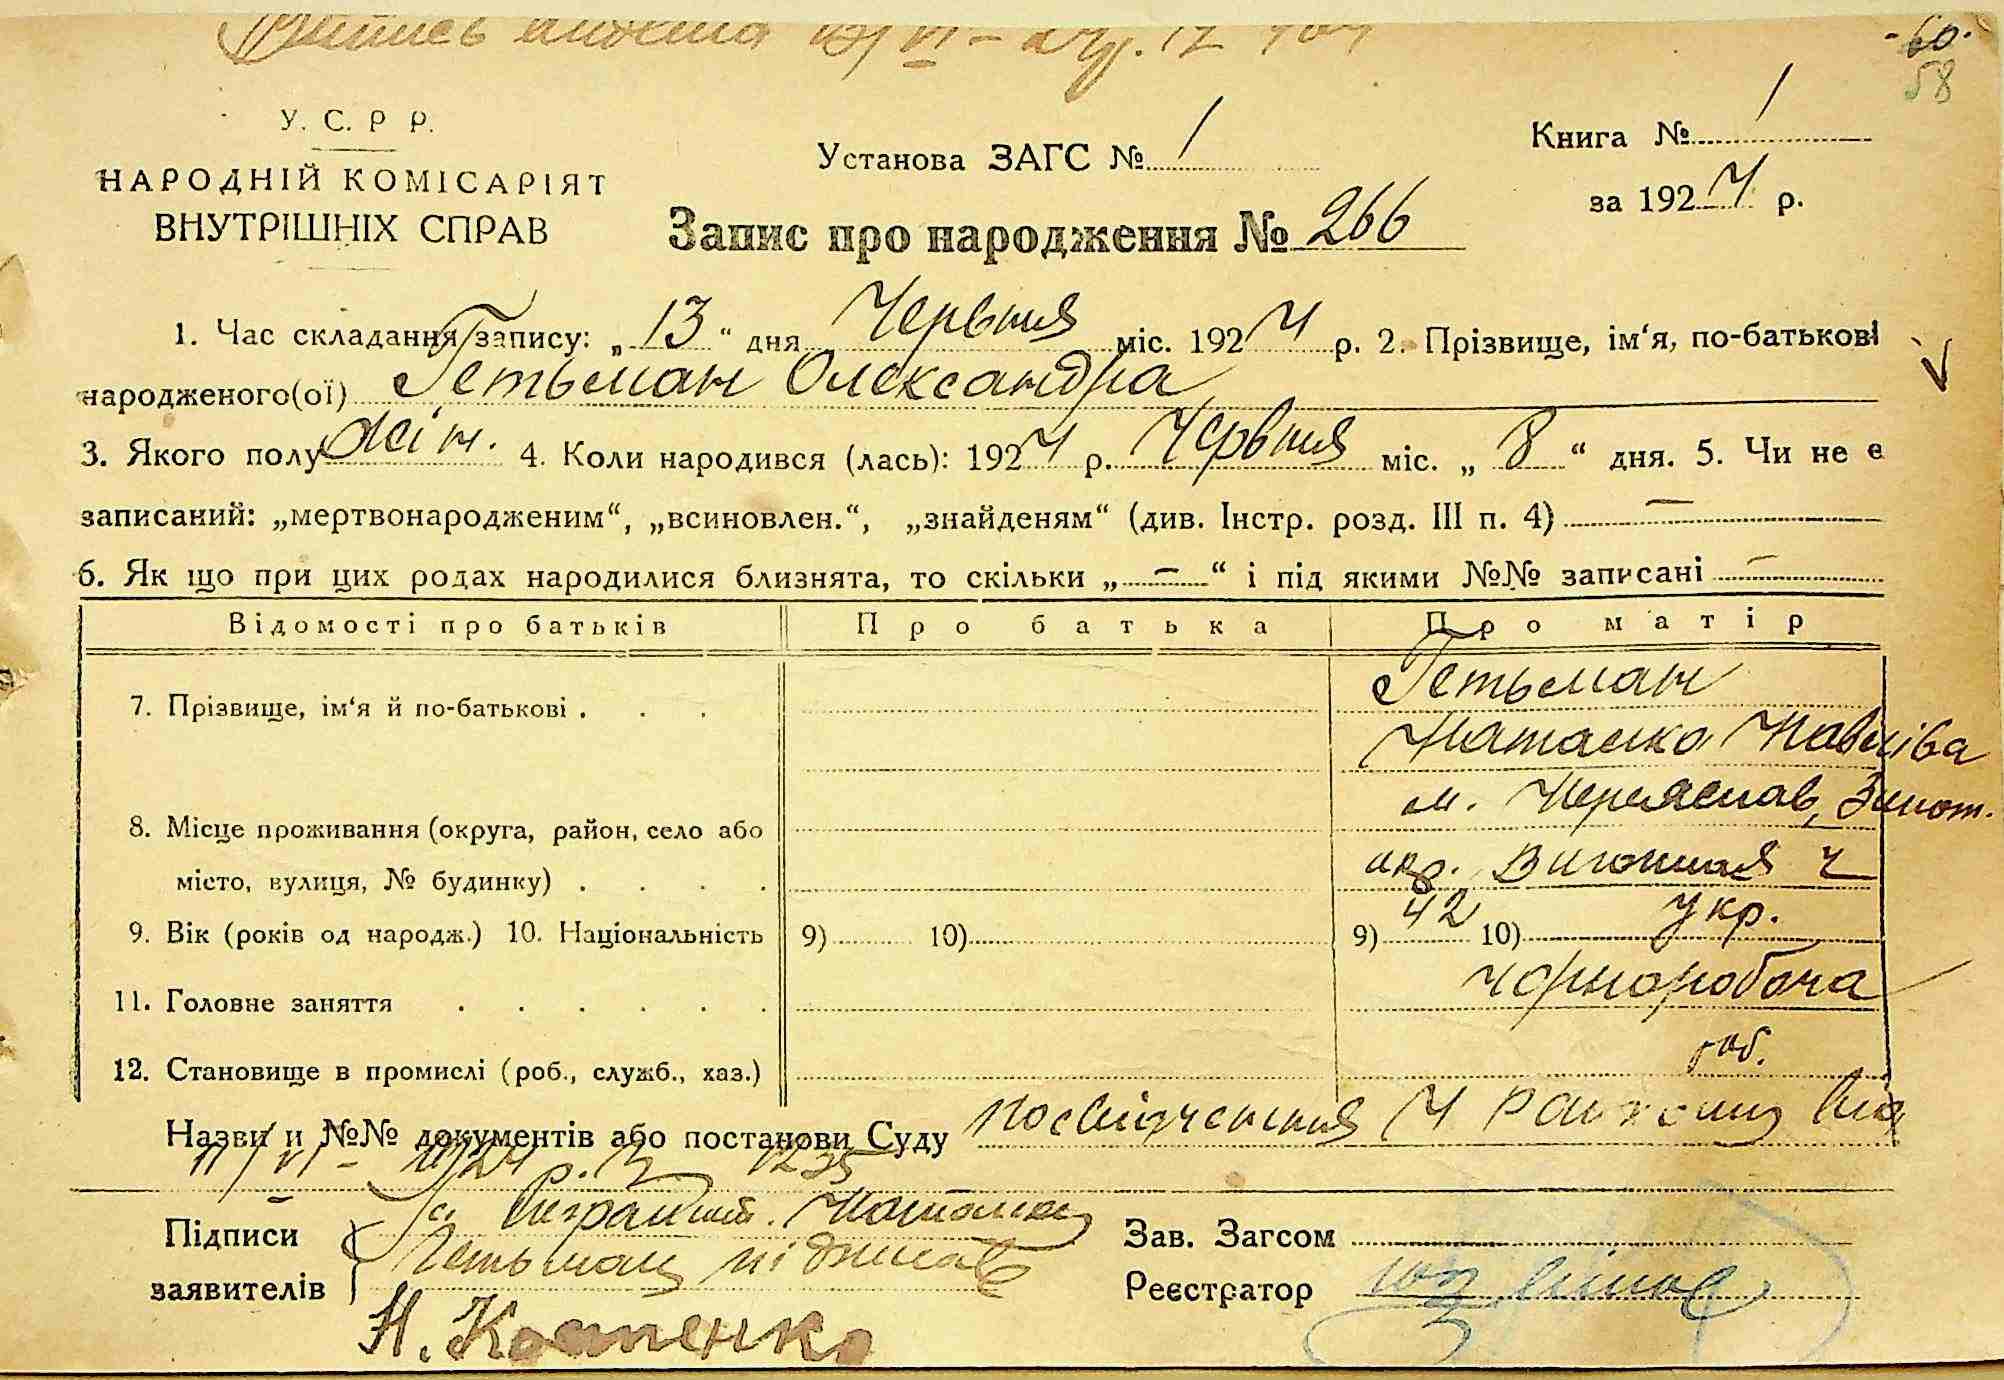 - 60.
58
У. С. Р Р.
НАРОДНІЙ КОМІСАРІЯТ
ВНУТРІШНІХ СПРАВ
Установа ЗАГС № 1
Книга № 1
за 1924 р.
Запис про народження № 266
1. Час складання запису: „13“ дня Червня міс. 1924 р. 2. Прізвище, ім‘я, по-батькові
народженого(ої) Гетьман Олександра
3. Якого полу жін. 4. Коли народився (лась): 1924 р. Червня міс. „8“ дня. 5. Чи не е
записаний: „мертвонародженим“, „всиновлен.“, „знайденям“ (див. Інстр. розд. III п. 4) —
6. Як що при цих родах народилися близнята, то скільки „—“ і під якими №№ записані —
Відомості про батьків Про батька Про матір
7. Прізвище, ім‘я й по-батькові . . . Гетьман
Наталка Павлівна
8. Місце проживання (округа, район, село або м. Переяслав,
місто, вулиця, № будинку) . . . . окр.
9. Вік (років од народж.) 10. Національність 9) 10) 9) 42 10) Укр.
11. Головне заняття . . . . . . чорноробоча
12. Становище в промислі (роб., служб., хаз.) роб.
Назви и №№ документів або постанови Суду посвідчення
11/VI – 1924 р. № 1235
Підписи Наталка
заявителів Гетьман підписав
Н. Костенко
Зав. Загсом
Реєстратор